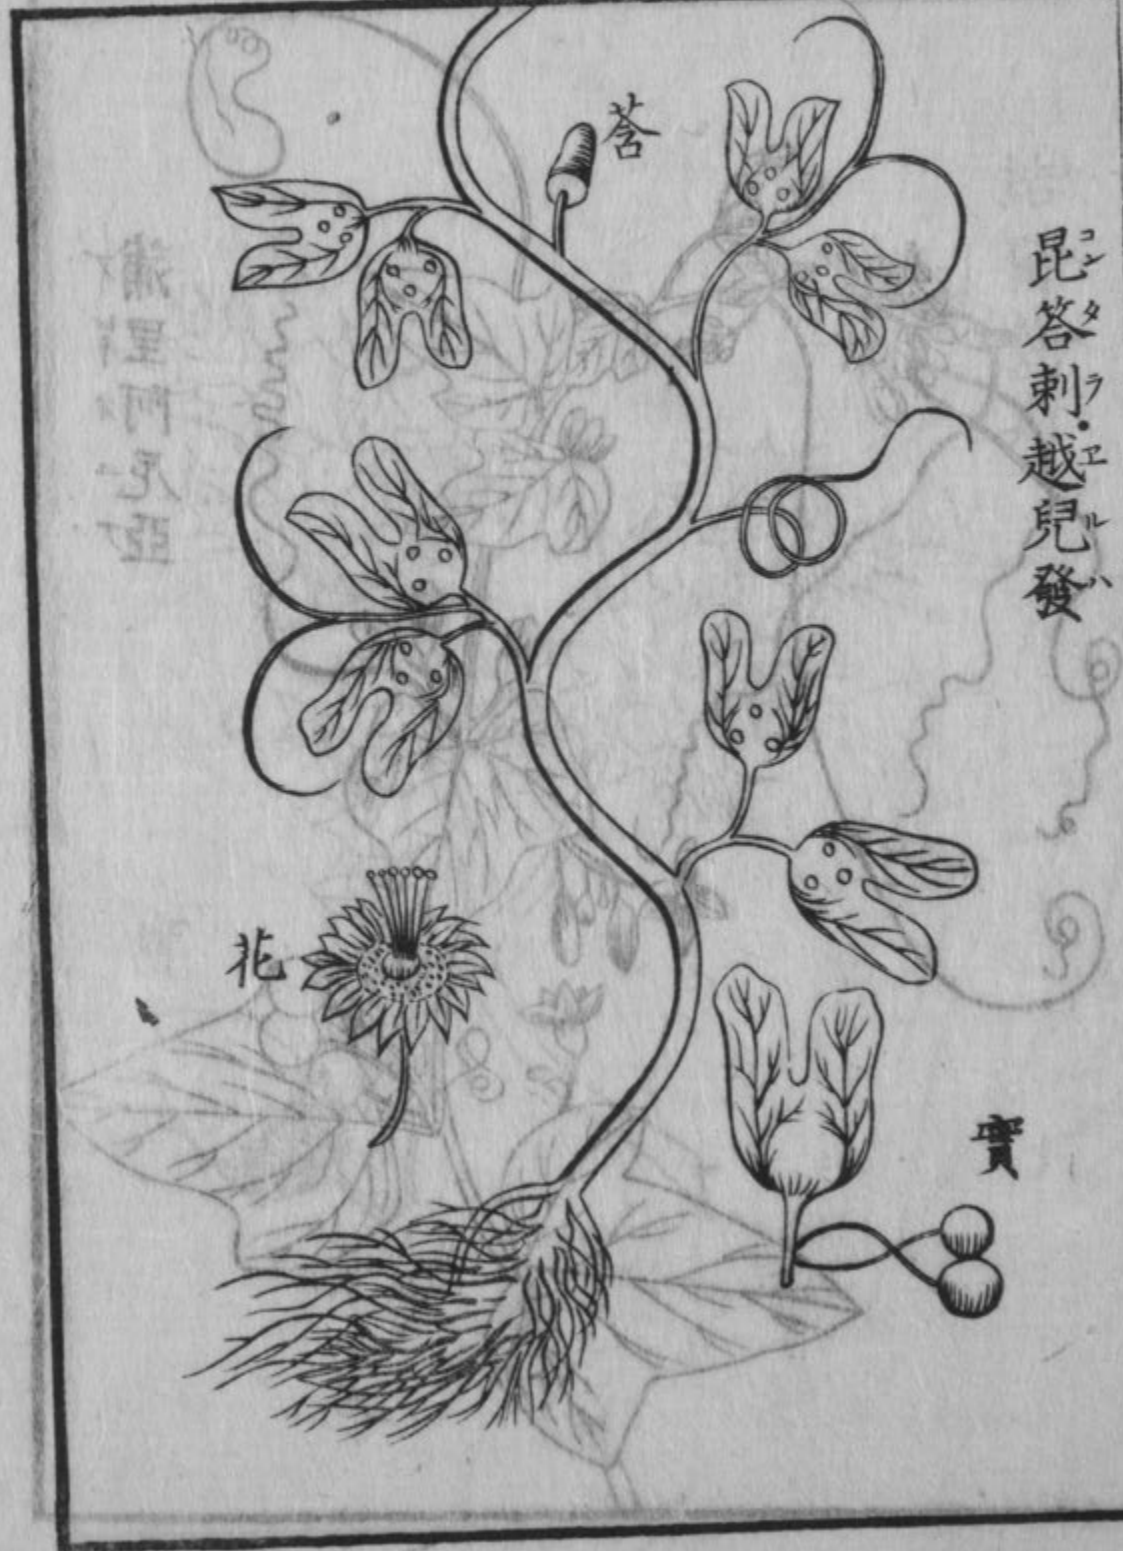 昆答剌・越兒發
コンタラエルハ
荅
花
實